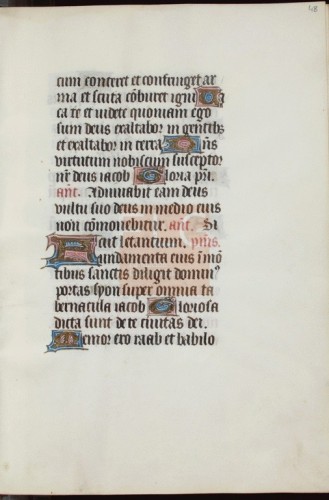 48
cum conteret et confringet ar
ma et scuta cōburet igni Ua
ca te et videte quoniam ego
sum deus exaltabor in gentibꝫ
et exaltabor in terra Dn̄s
virtutum nobiscum susceptor
nr̄ deus iacob Gloria pr̄i.
an̄t. Adiuuabit eam deus
vultu suo deus in medio eius
non cōmouebitur. an̄t. Si
cut letantium. p̄s.
Fundamenta eius ī mō
tibus sanctis diligit domin⁹
portas syon super omnia ta
bernacula iacob Gloriosa
dicta sunt de te ciuitas dei.
Memor ero raab et babilo